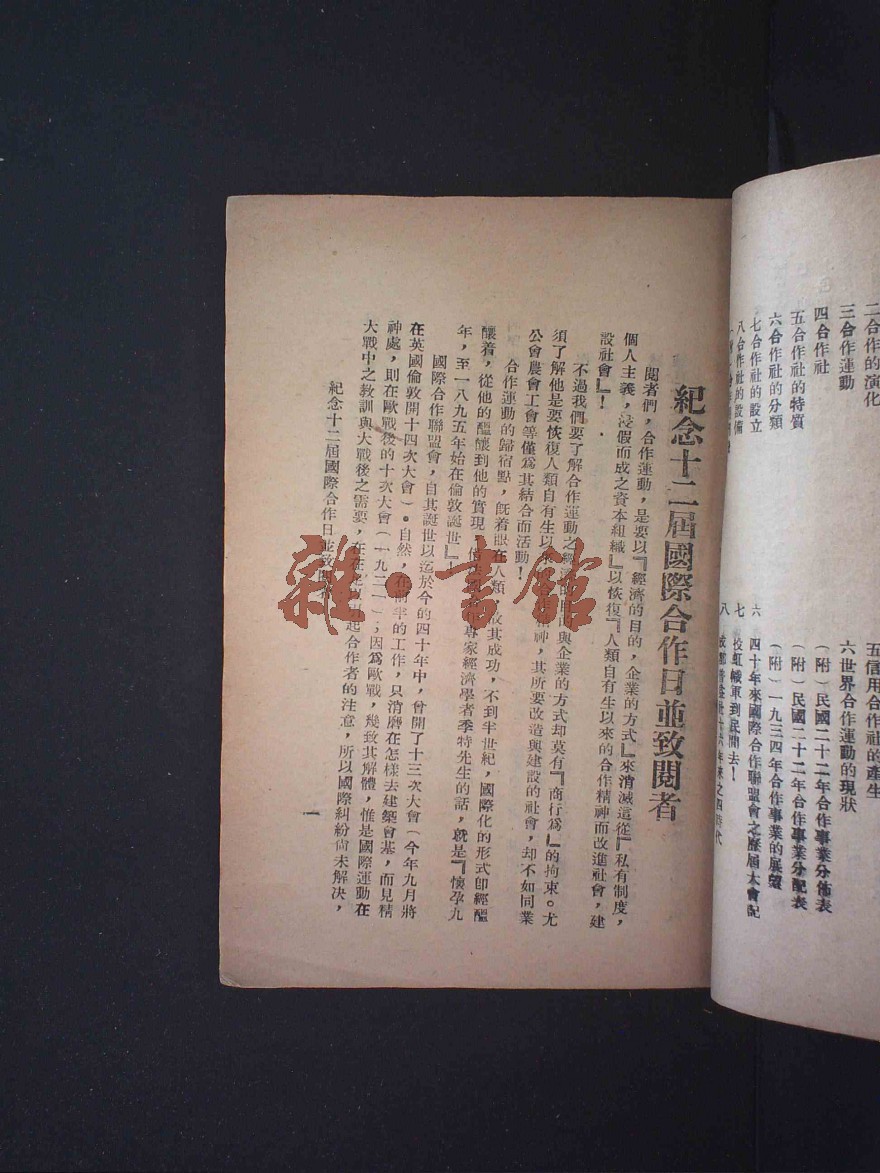 二合作的演化
三合作運動
四合作社
五合作社的特質
六合作社的分類
七合作社的設立
八合作社的設備
五信用合作社的產生
六世界合作運動的現狀
(附)民國二十二年合作事業分佈表
(附)民國二十二年合作事業分配表
(附)一九三四年合作事業的展望
六 四十年來國際合作聯盟會之歷屆大會記
七 投虹幟軍到民間去!
八
紀念十二屆國際合作日並致閱者
閱者們,合作運動,是要以『經濟的目的,企業的方式』來消滅這從『私有制度,
個人主義,浸假而成之資本組織』以恢復『人類自有生以來的合作精神而改進社會,建
設社會』!
不過我們要了解合作運動之經濟的目的與企業的方式却莫有『商行為』的拘束。尤
須了解他是要恢復人類自有生以來 精神,其所要改造與建設的社會,却不如同業
公會農會工會等僅為其結合而活動!
合作運動的歸宿點,既着眼在人類 故其成功,不到半世紀,國際化的形式即經醞
釀着,從他的醞釀到他的實現 專家經濟學者季特先生的話,就是『懷孕九
年,至一八九五年始在倫敦誕世』
國際合作聯盟會,自其誕世以迄於今的四十年中,曾開了十三次大會(今年九月將
在英國倫敦開十四次大會)。自然,在前半的工作,只消磨在怎樣去建築會基,而見精
神處,則在歐戰後的十次大會(一九二一);因為歐戰,幾致其解體,惟是國際運動在
大戰中之教訓與大戰後之需要,在在 起合作者的注意,所以國際糾紛尚未解決,
紀念十二屆國際合作日並致閱者
一
雜·書館